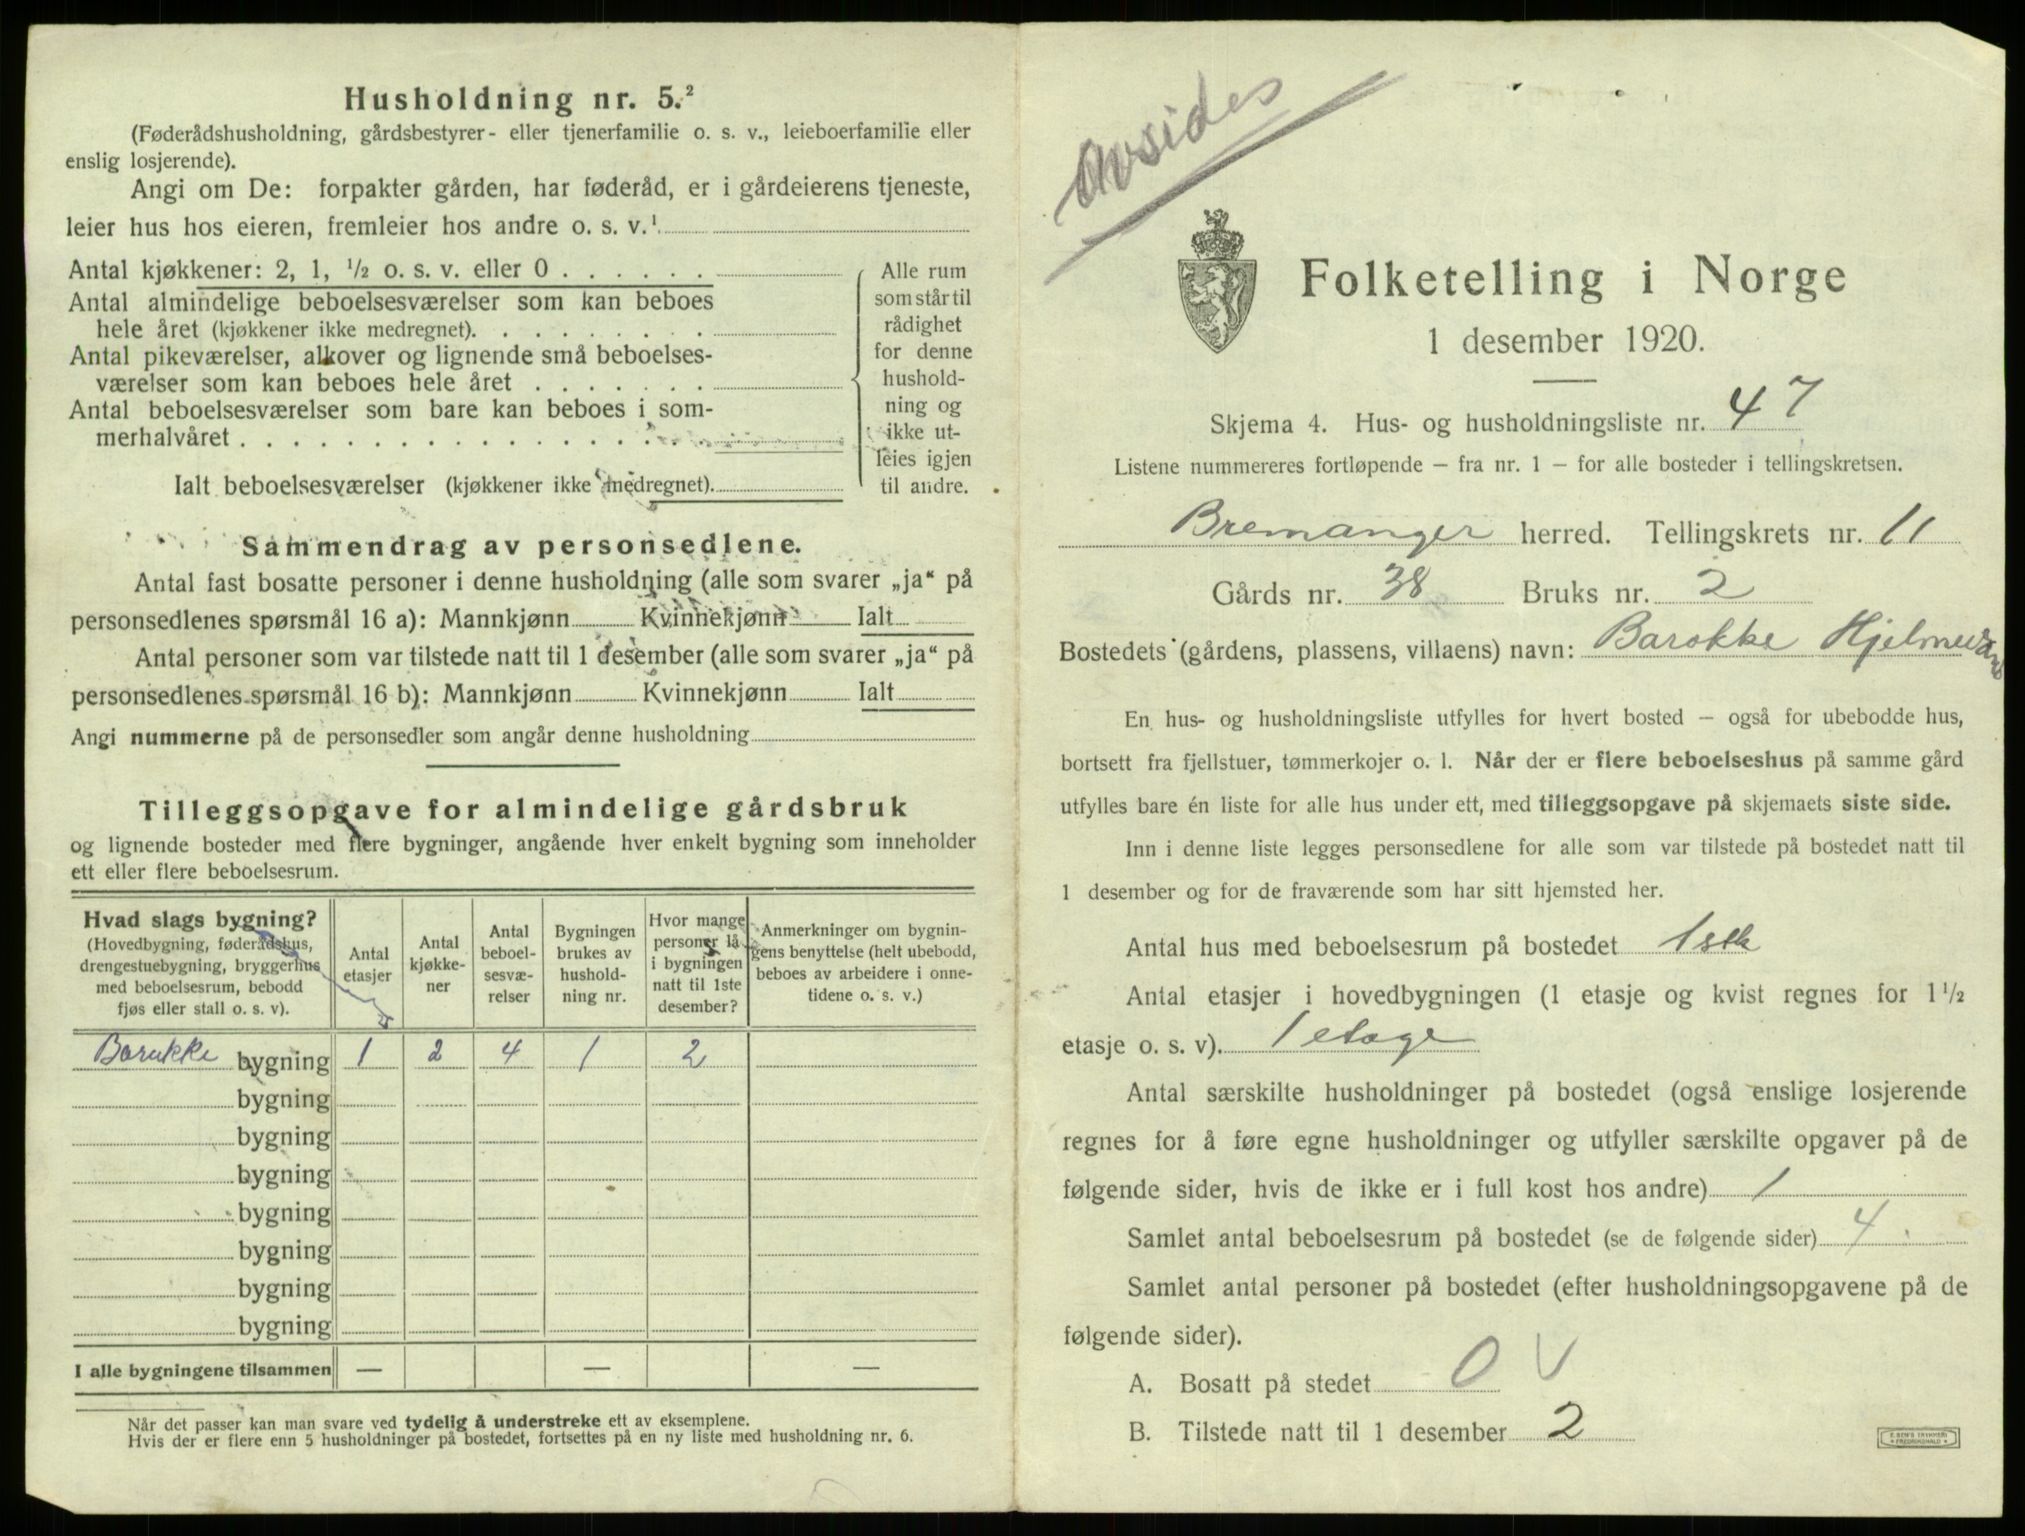 Husholdning nr. 5.²
(Føderådshusholdning, gårdsbestyrer- eller tjenerfamilie o. s. v., leieboerfamilie eller
enslig losjerende).
Angi om De: forpakter gården, har føderåd, er i gårdeierens tjeneste,
leier hus hos eieren, fremleier hos andre o. s. v.¹
Antal kjøkkener: 2, 1, ½ o. s. v. eller 0 . . . . . .
Antal almindelige beboelsesværelser som kan beboes
hele året (kjøkkener ikke medregnet). . . . . . . . .
Antal pikeværelser, alkover og lignende små beboelses-
værelser som kan beboes hele året . . . . . . .
Antal beboelsesværelser som bare kan beboes i som-
merhalvåret . . . . . . . . . . . . . . . . . .
Ialt beboelsesværelser (kjøkkener ikke medregnet).
Alle rum
som står til
rådighet
for denne
hushold-
ning og
ikke ut-
leies igjen
til andre.
Sammendrag av personsedlene.
Antal fast bosatte personer i denne husholdning (alle som svarer „ja“ på
personsedlenes spørsmål 16 a): Mannkjønn Kvinnekjønn Ialt
Antal personer som var tilstede natt til 1 desember (alle som svarer „ja“ på
personsedlenes spørsmål 16 b): Mannkjønn Kvinnekjønn Ialt
Angi nummerne på de personsedler som angår denne husholdning
Tilleggsopgave for almindelige gårdsbruk
og lignende bosteder med flere bygninger, angående hver enkelt bygning som inneholder
ett eller flere beboelsesrum.
Hvad slags bygning?
(Hovedbygning, føderådshus,
drengestuebygning, bryggerhus
med beboelsesrum, bebodd
fjøs eller stall o. s. v).
Antal
etasjer
Antal
kjøkke-
ner
Antal
beboel-
sesvæ-
relser
Bygningen
brukes av
hushold-
ning nr.
Hvor mange
personer lå
i bygningen
natt til 1ste
desember?
Anmerkninger om bygnin-
gens benyttelse (helt ubebodd,
beboes av arbeidere i onne-
tidene o. s. v.)
Barukke bygning 1 2 4 1 2
bygning
bygning
bygning
bygning
bygning
bygning
bygning
I alle bygningene tilsammen — — —
Når det passer kan man svare ved tydelig å understreke ett av eksemplene.
Hvis der er flere enn 5 husholdninger på bostedet, fortsettes på en ny liste med husholdning nr. 6.
Avsides
Folketelling i Norge
1 desember 1920.
Skjema 4. Hus- og husholdningsliste nr. 47
Listene nummereres fortløpende – fra nr. 1 – for alle bosteder i tellingskretsen.
Bremanger herred. Tellingskrets nr. 11
Gårds nr. 38 Bruks nr. 2
Bostedets (gårdens, plassens, villaens) navn: Barokke Hjelmevand
En hus- og husholdningsliste utfylles for hvert bosted – også for ubebodde hus,
bortsett fra fjellstuer, tømmerkojer o. l. Når der er flere beboelseshus på samme gård
utfylles bare én liste for alle hus under ett, med tilleggsopgave på skjemaets siste side.
Inn i denne liste legges personsedlene for alle som var tilstede på bostedet natt til
1 desember og for de fraværende som har sitt hjemsted her.
Antal hus med beboelsesrum på bostedet 1 stk
Antal etasjer i hovedbygningen (1 etasje og kvist regnes for 1 ½
etasje o. s. v). 1 etage
Antal særskilte husholdninger på bostedet (også enslige losjerende
regnes for å føre egne husholdninger og utfyller særskilte opgaver på de
følgende sider, hvis de ikke er i full kost hos andre) 1
Samlet antal beboelsesrum på bostedet (se de følgende sider) 4
Samlet antal personer på bostedet (efter husholdningsopgavene på de
følgende sider).
A. Bosatt på stedet 0
B. Tilstede natt til 1 desember 2